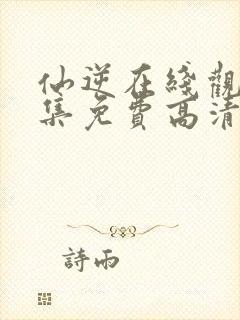 仙逆在綫觀
集免費高清
詩雨